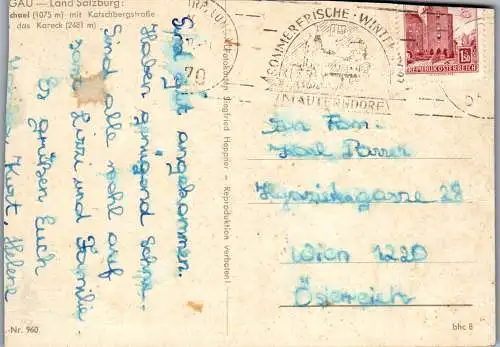 GAU — Land Salzburg:
chael (1075 m) mit Katschbergstraße
das Kareck (2481 m)
Sind gut angekommen.
Haben genügend Schnee
Sind alle wohl auf
und Familie
Es grüßen Euch
Kurt, Helene
Siegfried Happier — Reproduktion verboten!
70
SOMMERFRISCHE · WINTER
MAUTERNDORF
REPUBLIK ÖSTERREICH
An Fam.
Karl
28
Wien 1220
Österreich
-Nr. 960
bhc 8